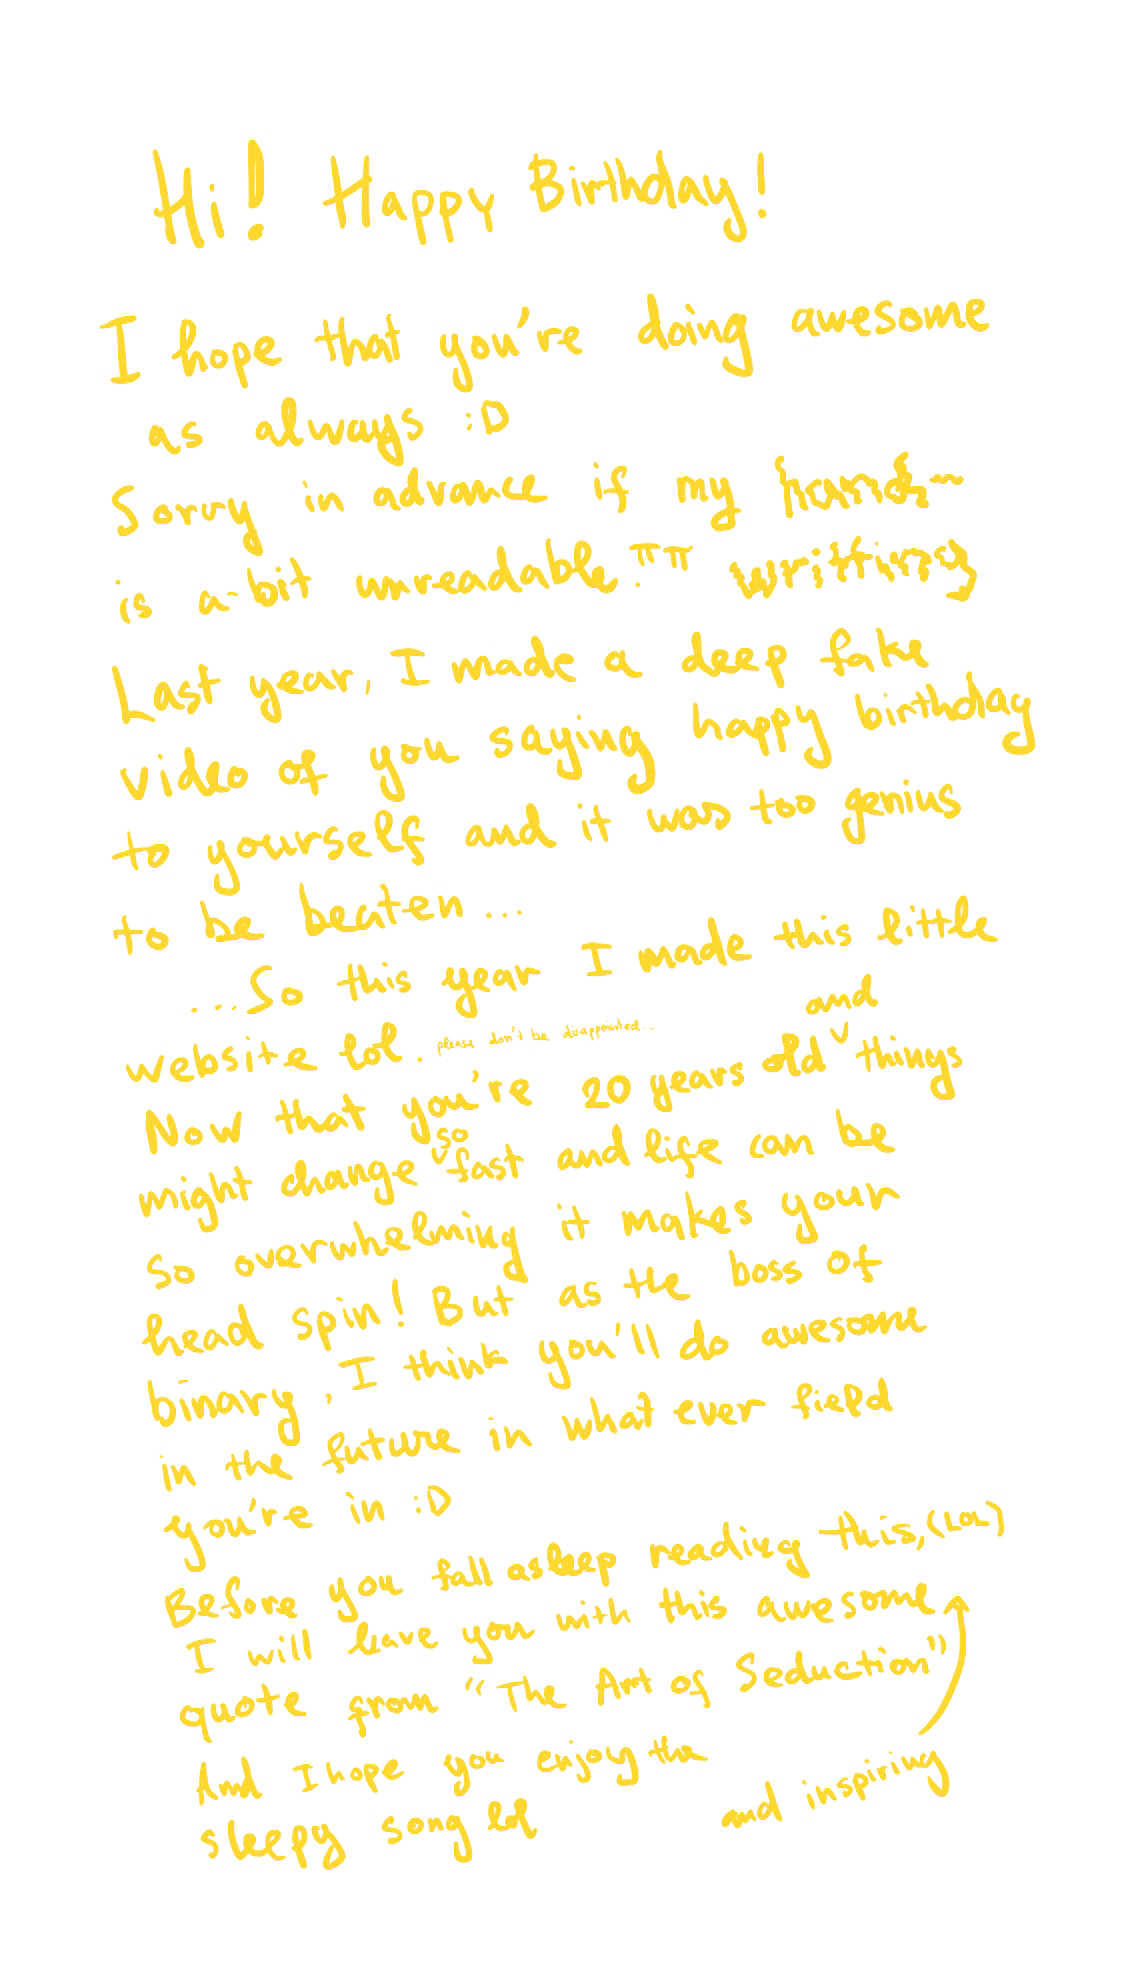 Hi! Happy Birthday!
I hope that you're doing awesome
as always :D
Sorry in advance if my hand-
is a bit unreadable. TT writting
Last year, I made a deep fake
video of you saying happy birthday
to yourself and it was too genius
to be beaten...
...So this year I made this little
website lol. please don't be disappointed...
and
Now that you're 20 years old things
so
might change fast and life can be
so overwhelming it makes your
head spin! But as the boss of
binary, I think you'll do awesome
in the future in what ever field
you're in :D
Before you fall asleep reading this, (LOL)
I will leave you with this awesome
quote from "The Art of Seduction"
And I hope you enjoy the
and inspiring
sleepy song lol